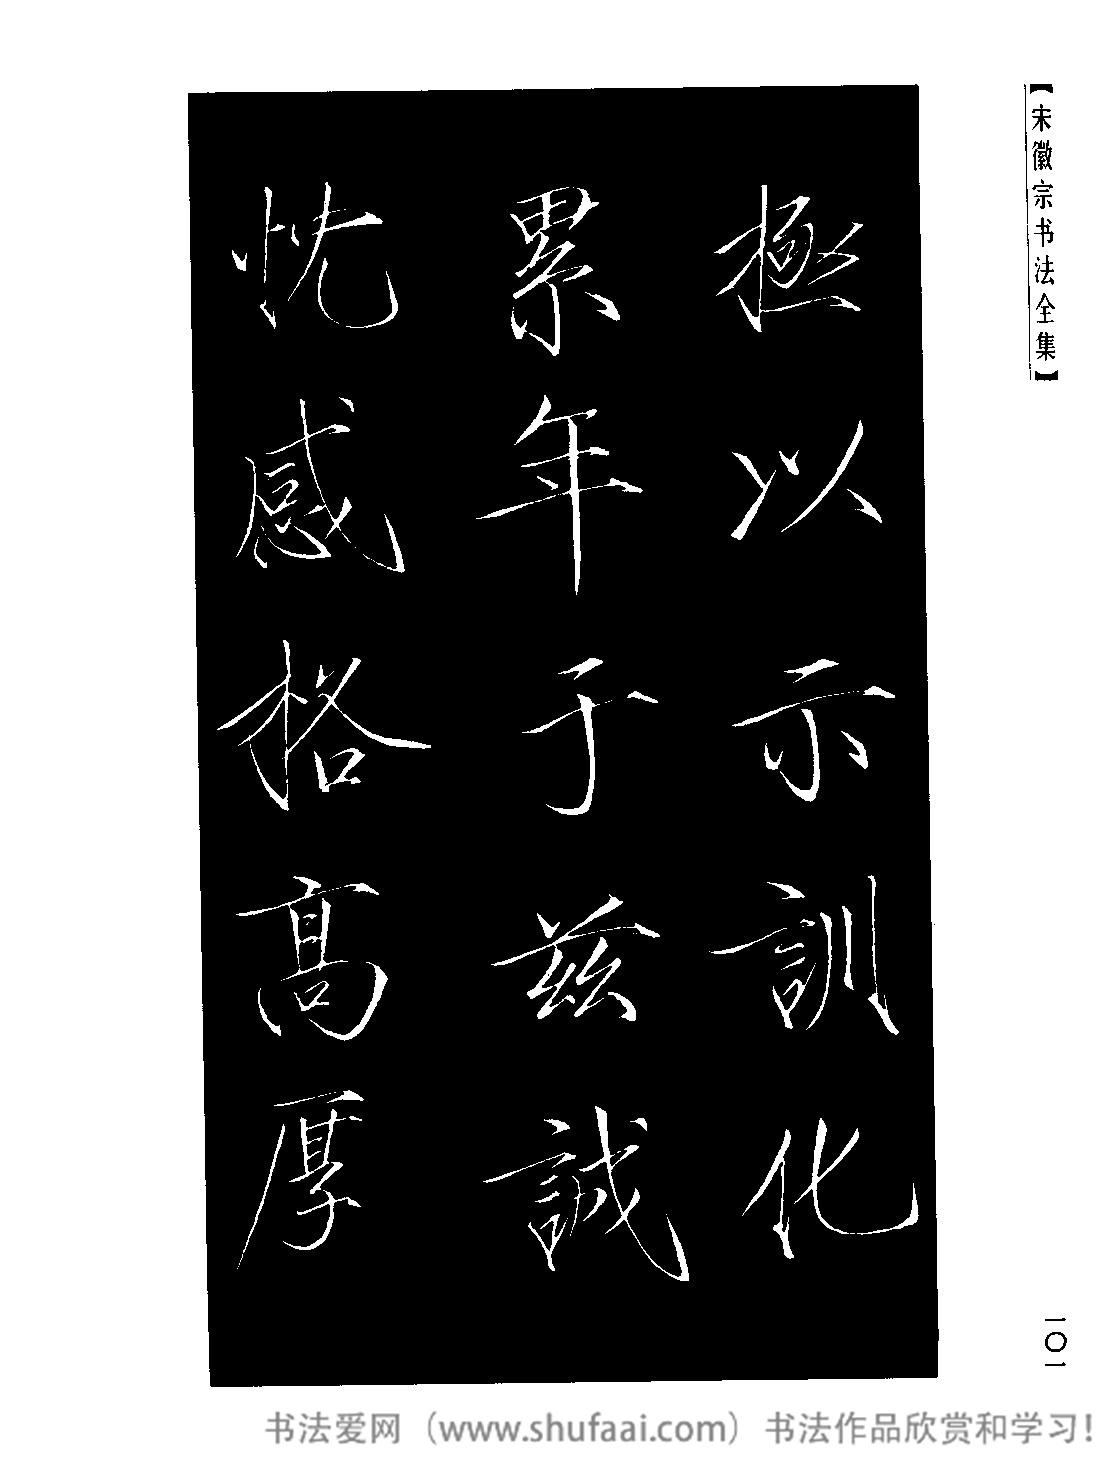 【宋徽宗书法全集】
極以示訓化
累年于兹誠
忱感格高厚
一〇一
书法爱网（www.shufaai.com）书法作品欣赏和学习！